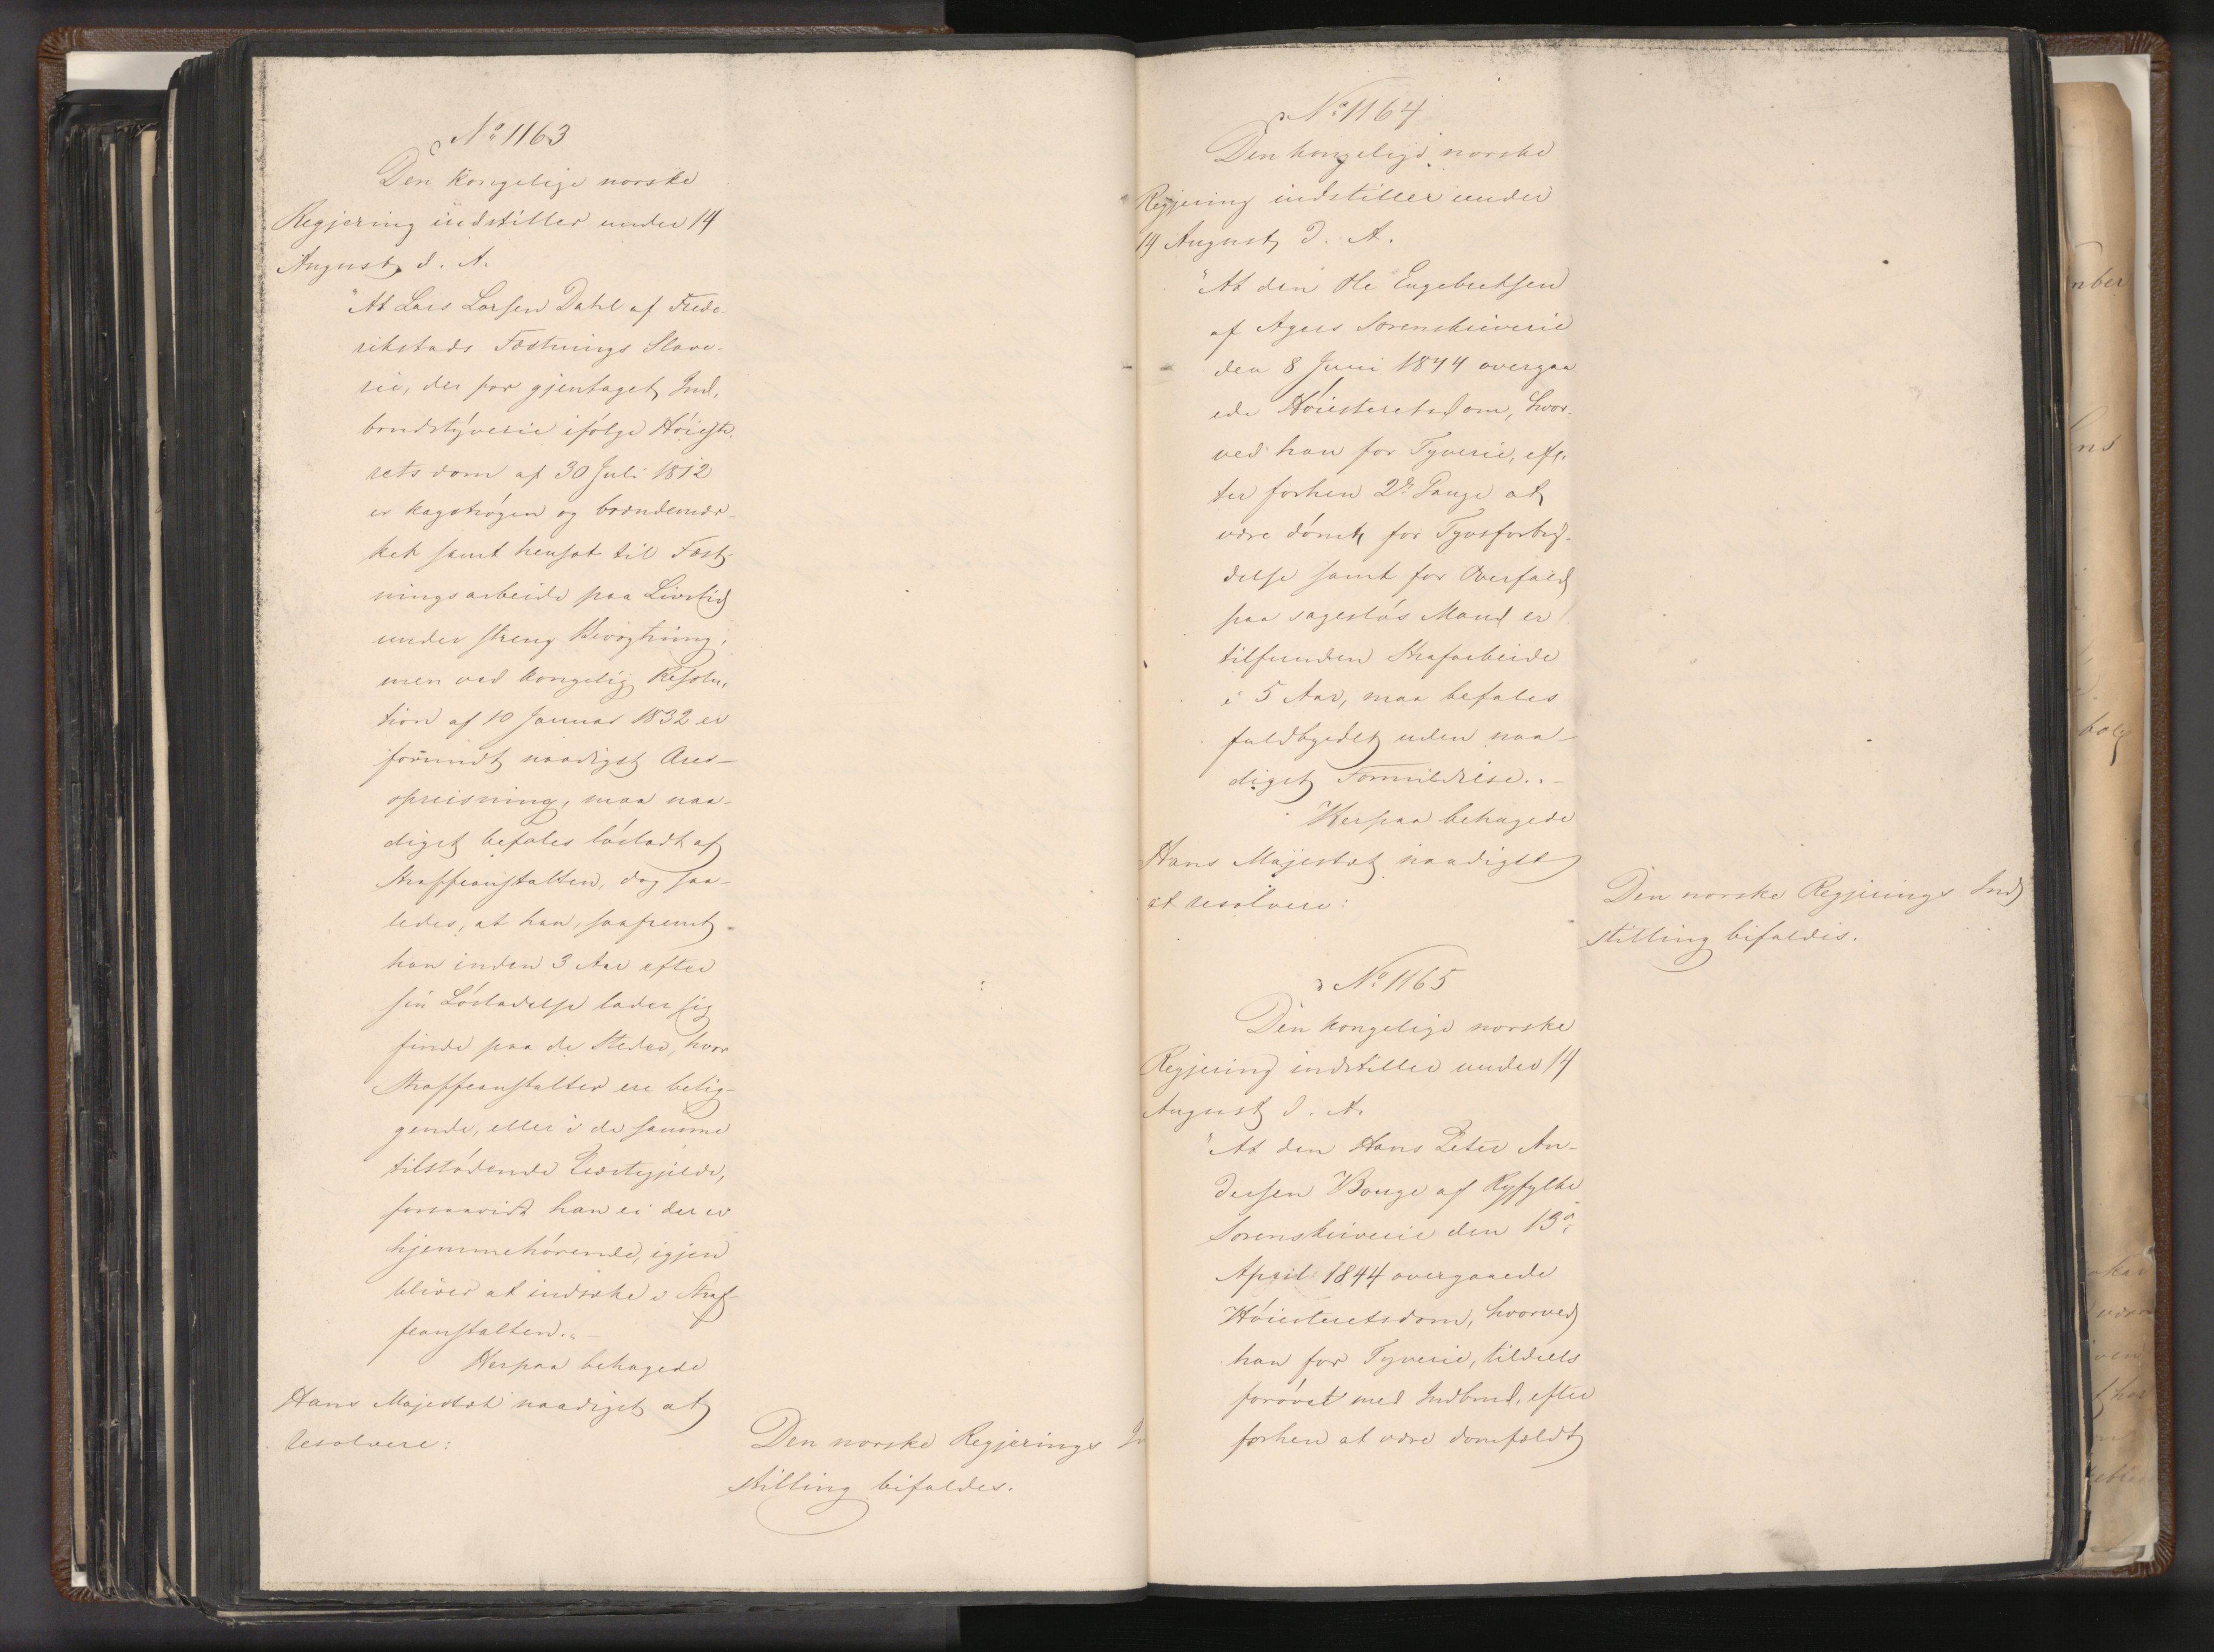 No 1163
Den kongelige norske
Regjering indstiller under 14
August d. A.
"At Lars Larsen Dahl af Frede-
rikstads Fæstnings Slave-
rie, der for gjentaget Ind,
brudstyverie ifølge Høieste-
rets dom af 30 Juli 1812
er kagstrøgen og brændemær-
ket samt hensat til Fæst-
ningsarbeide paa Livstid
under streng Bevogtning,
men ved kongelig Resolu,
tion af 10 Januar 1832 er
forundt naadigst Æres-
opreisning, maa naa-
digst befales løsladt af
Straffeanstalten, dog saa-
ledes, at han, saafremt
han inden 3 Aar efter
sin Løsladelse lader sig
finde paa de Steder, hvor
Straffeanstalter ere belig-
gende, eller i de samme
tilstødende Præstegjelde,
forsaavidt han ei der er
hjemmehørende, igjen
bliver at indsætte i Straf-
feanstalten."
Herpaa behagede
Hans Majestæt naadigst at
resolvere:
Den norske Regjerings In
stilling bifaldes.
No 1164
Den kongelige norske
Regjering indstiller under
14 August d. A.
"At den Ole Engebretsen
af Agers Sorenskriverie
den 8 Juni 1844 overgaa
ede Høiesteretsdom, hvor-
ved han for Tyverie, ef-
ter forhen 2de Gange at
være dømt for Tyvsforbry-
delse samt for Overfald
paa sagesløs Mand er
tilfunden Strafarbeide
i 5 Aar, maa befales
fuldbyrdet uden naa-
digst Formildelse."
Herpaa behagede
Hans Majestæt naadigst
at resolvere:
Den norske Regjerings Ind
stilling bifaldes.
No 1165
Den kongelige norske
Regjering indstiller under 14
August d. A.
"At den Hans Peter An-
dersen Bouge af Ryfylke
Sorenskriverie den 13de
April 1844 overgaaede
Høiesteretsdom, hvorved
han for Tyverie, tildeels
forøvet med Indbrud, efter
forhen at være domfældt